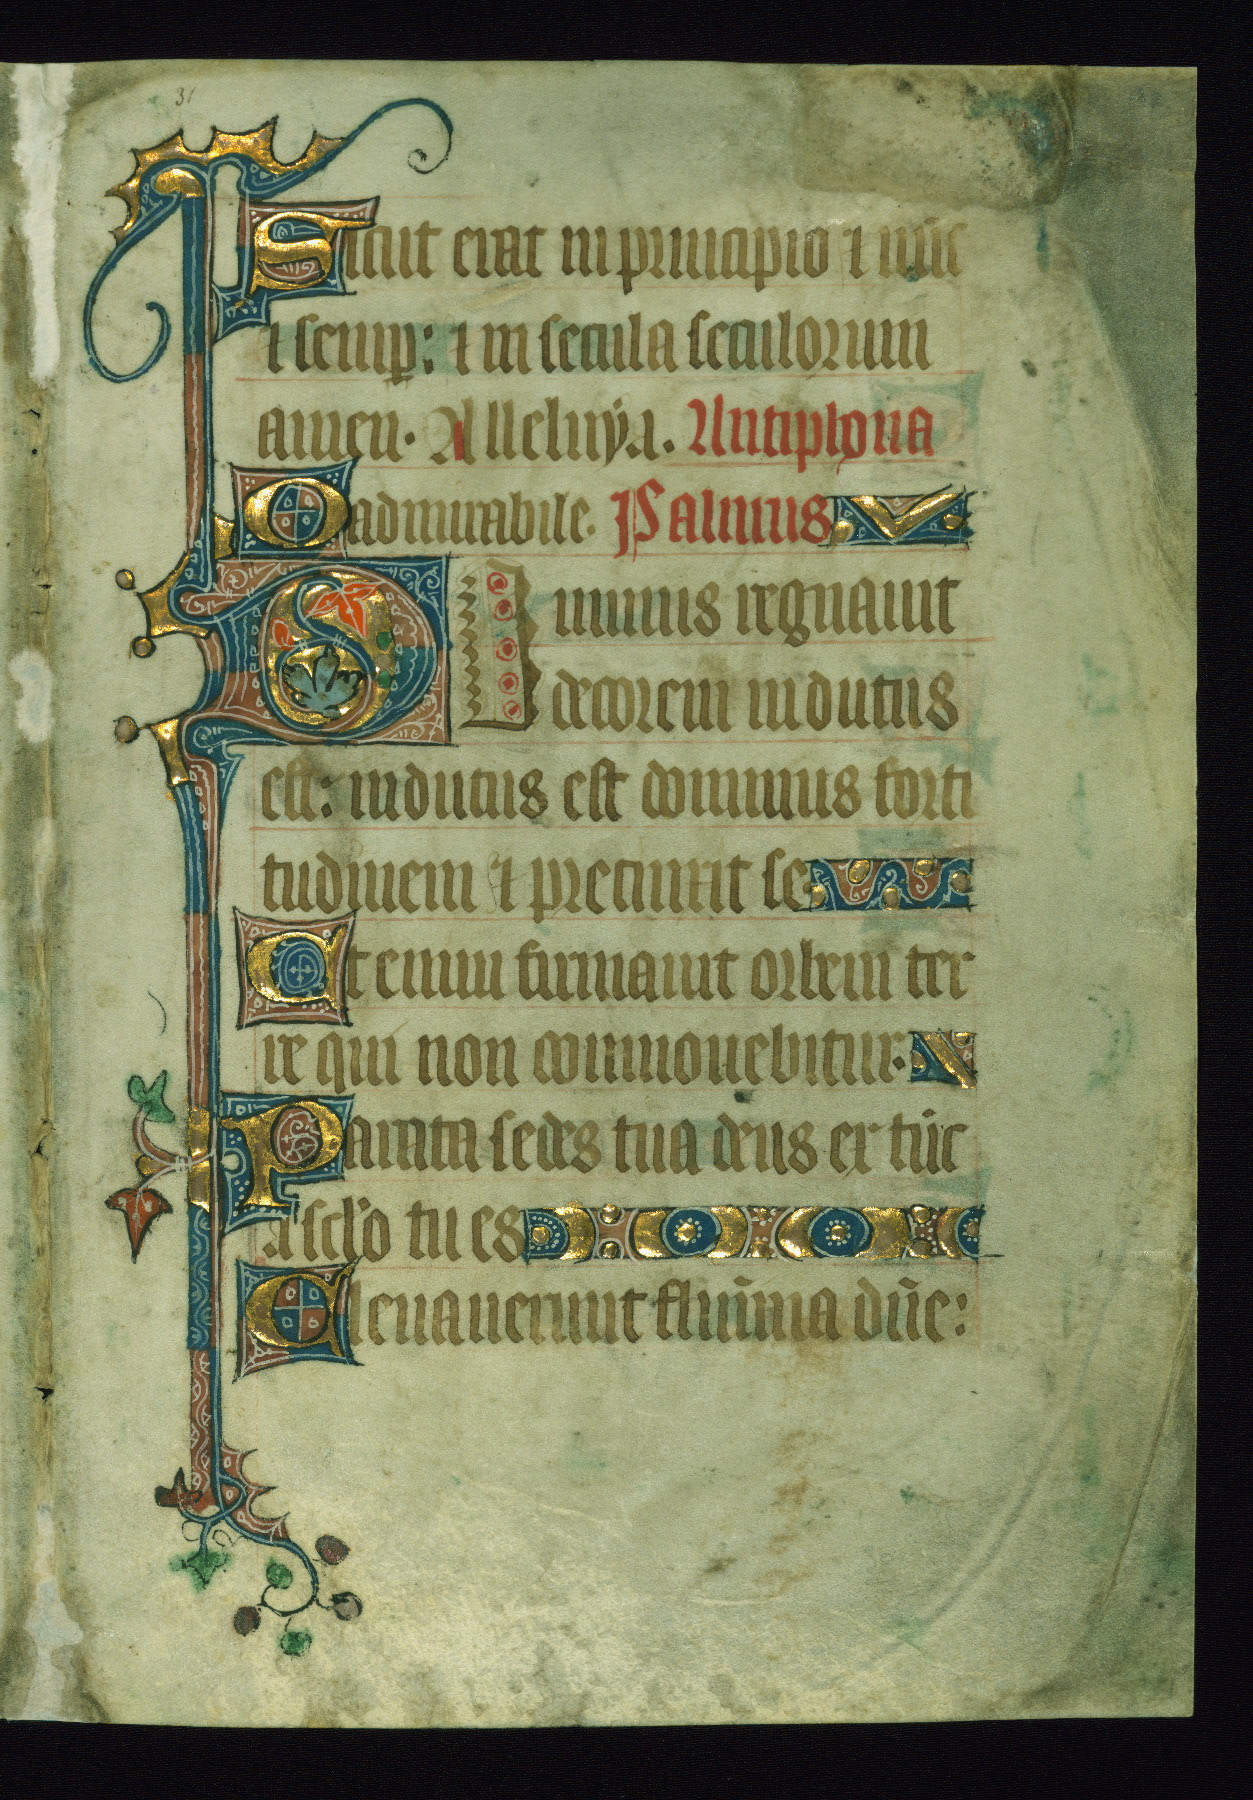 31
Sicut erat in principio ⁊ nu̅c
⁊ semꝑ: ⁊ in secula seculorum
amen. Alleluya. Antiphona
O admirabile. Psalmus
Dominus regnauit
decorem indutus
est: indutus est dominus forti
tudinem ⁊ precinxit se
Etenim firmauit orbem ter
re qui non commouebitur.
Parata sedes tua deus ex tu̅c
a sc̅lo tu es
Eleuauerunt flumi̅a dn̅e: